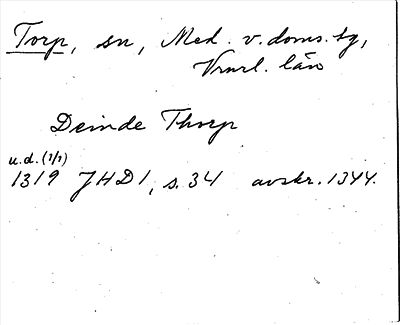 Torp, sn, Med. v. doms. tg,
Vrml. län
Deinde Thorp
u.d. (?/?)
1319 JHD 1, s. 34 avskr. 1344.